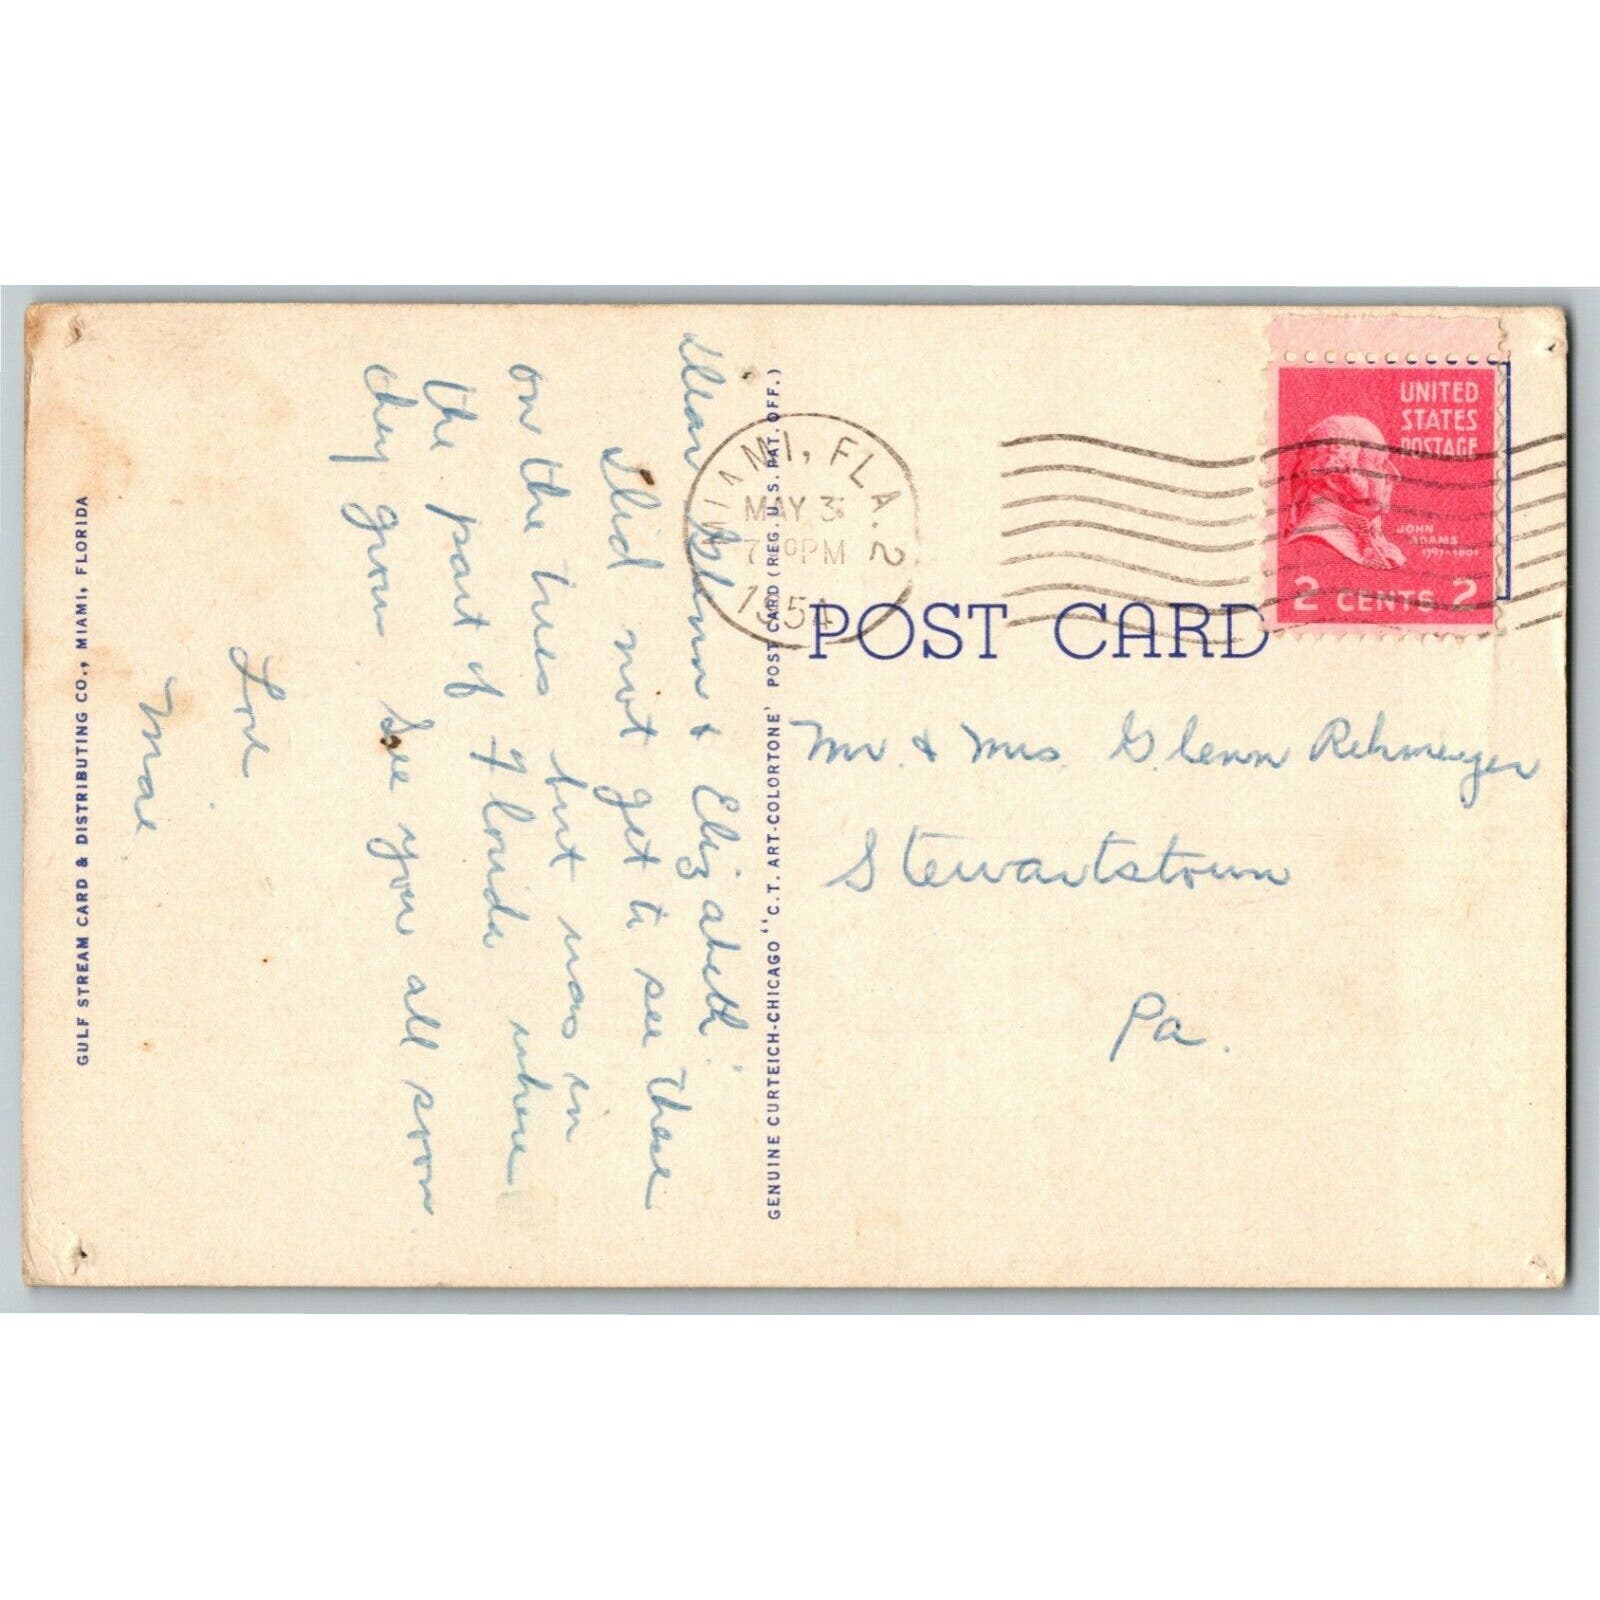 Dear Glenn & Elizabeth.
Did not get to see these
on the trees but was in
the part of Florida where
they grow. See you all soon.
Love
Mae.
GULF STREAM CARD & DISTRIBUTING CO., MIAMI, FLORIDA
GENUINE CURTEICH-CHICAGO "C.T. ART-COLORTONE" POST CARD (REG. U.S. PAT. OFF.)
MIAMI, FLA. 2
MAY 3
PM
1954
POST CARD
UNITED
STATES
POSTAGE
JOHN
ADAMS
1797-1801
2 CENTS 2
Mr. & Mrs. Glenn Rehmeyer
Stewartstown
Pa.